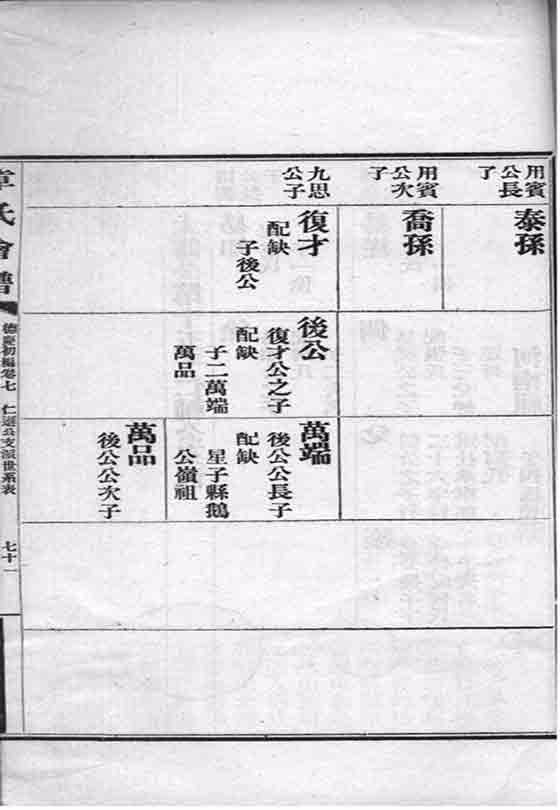 用賓
公長
子
泰孫
用賓
公次
子
喬孫
九思
公子
復才
配缺
子後公
後公
復才公之子
配缺
子二萬端
萬品
萬端
後公公長子
配缺
星子縣鵝
公嶺祖
萬品
後公公次子
章氏會譜
德慶初編卷七
仁迺公支派世系表
七十一